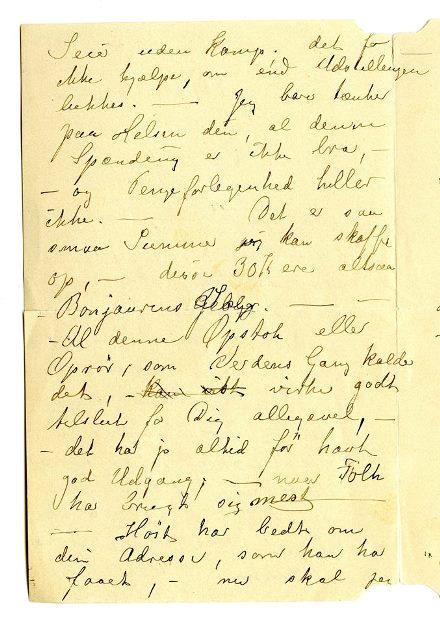 Seir uden Kamp. det faar
ikke hjælpe, om end Udstillingen
lukkes. — Jeg bare tænker
paa Helsen din, al denne
Spænding er ikke bra, —
— og Pengeforlegenhed heller
ikke. — Det er saa
smaa Summer jeg kan skaffe
op, — disse 30 k ere altsaa
Bonjourens — —
— Al denne Opstok eller
Oprör, som Verdens Gang kalder
det, — virke godt
tilslut for Dig allegavel, —
— det har jo altid för havt
god Udgang; — naar Folk
har bragt sig mest
— Höst har bedt om
din Adresse, som han har
faaet, — nu skal jeg